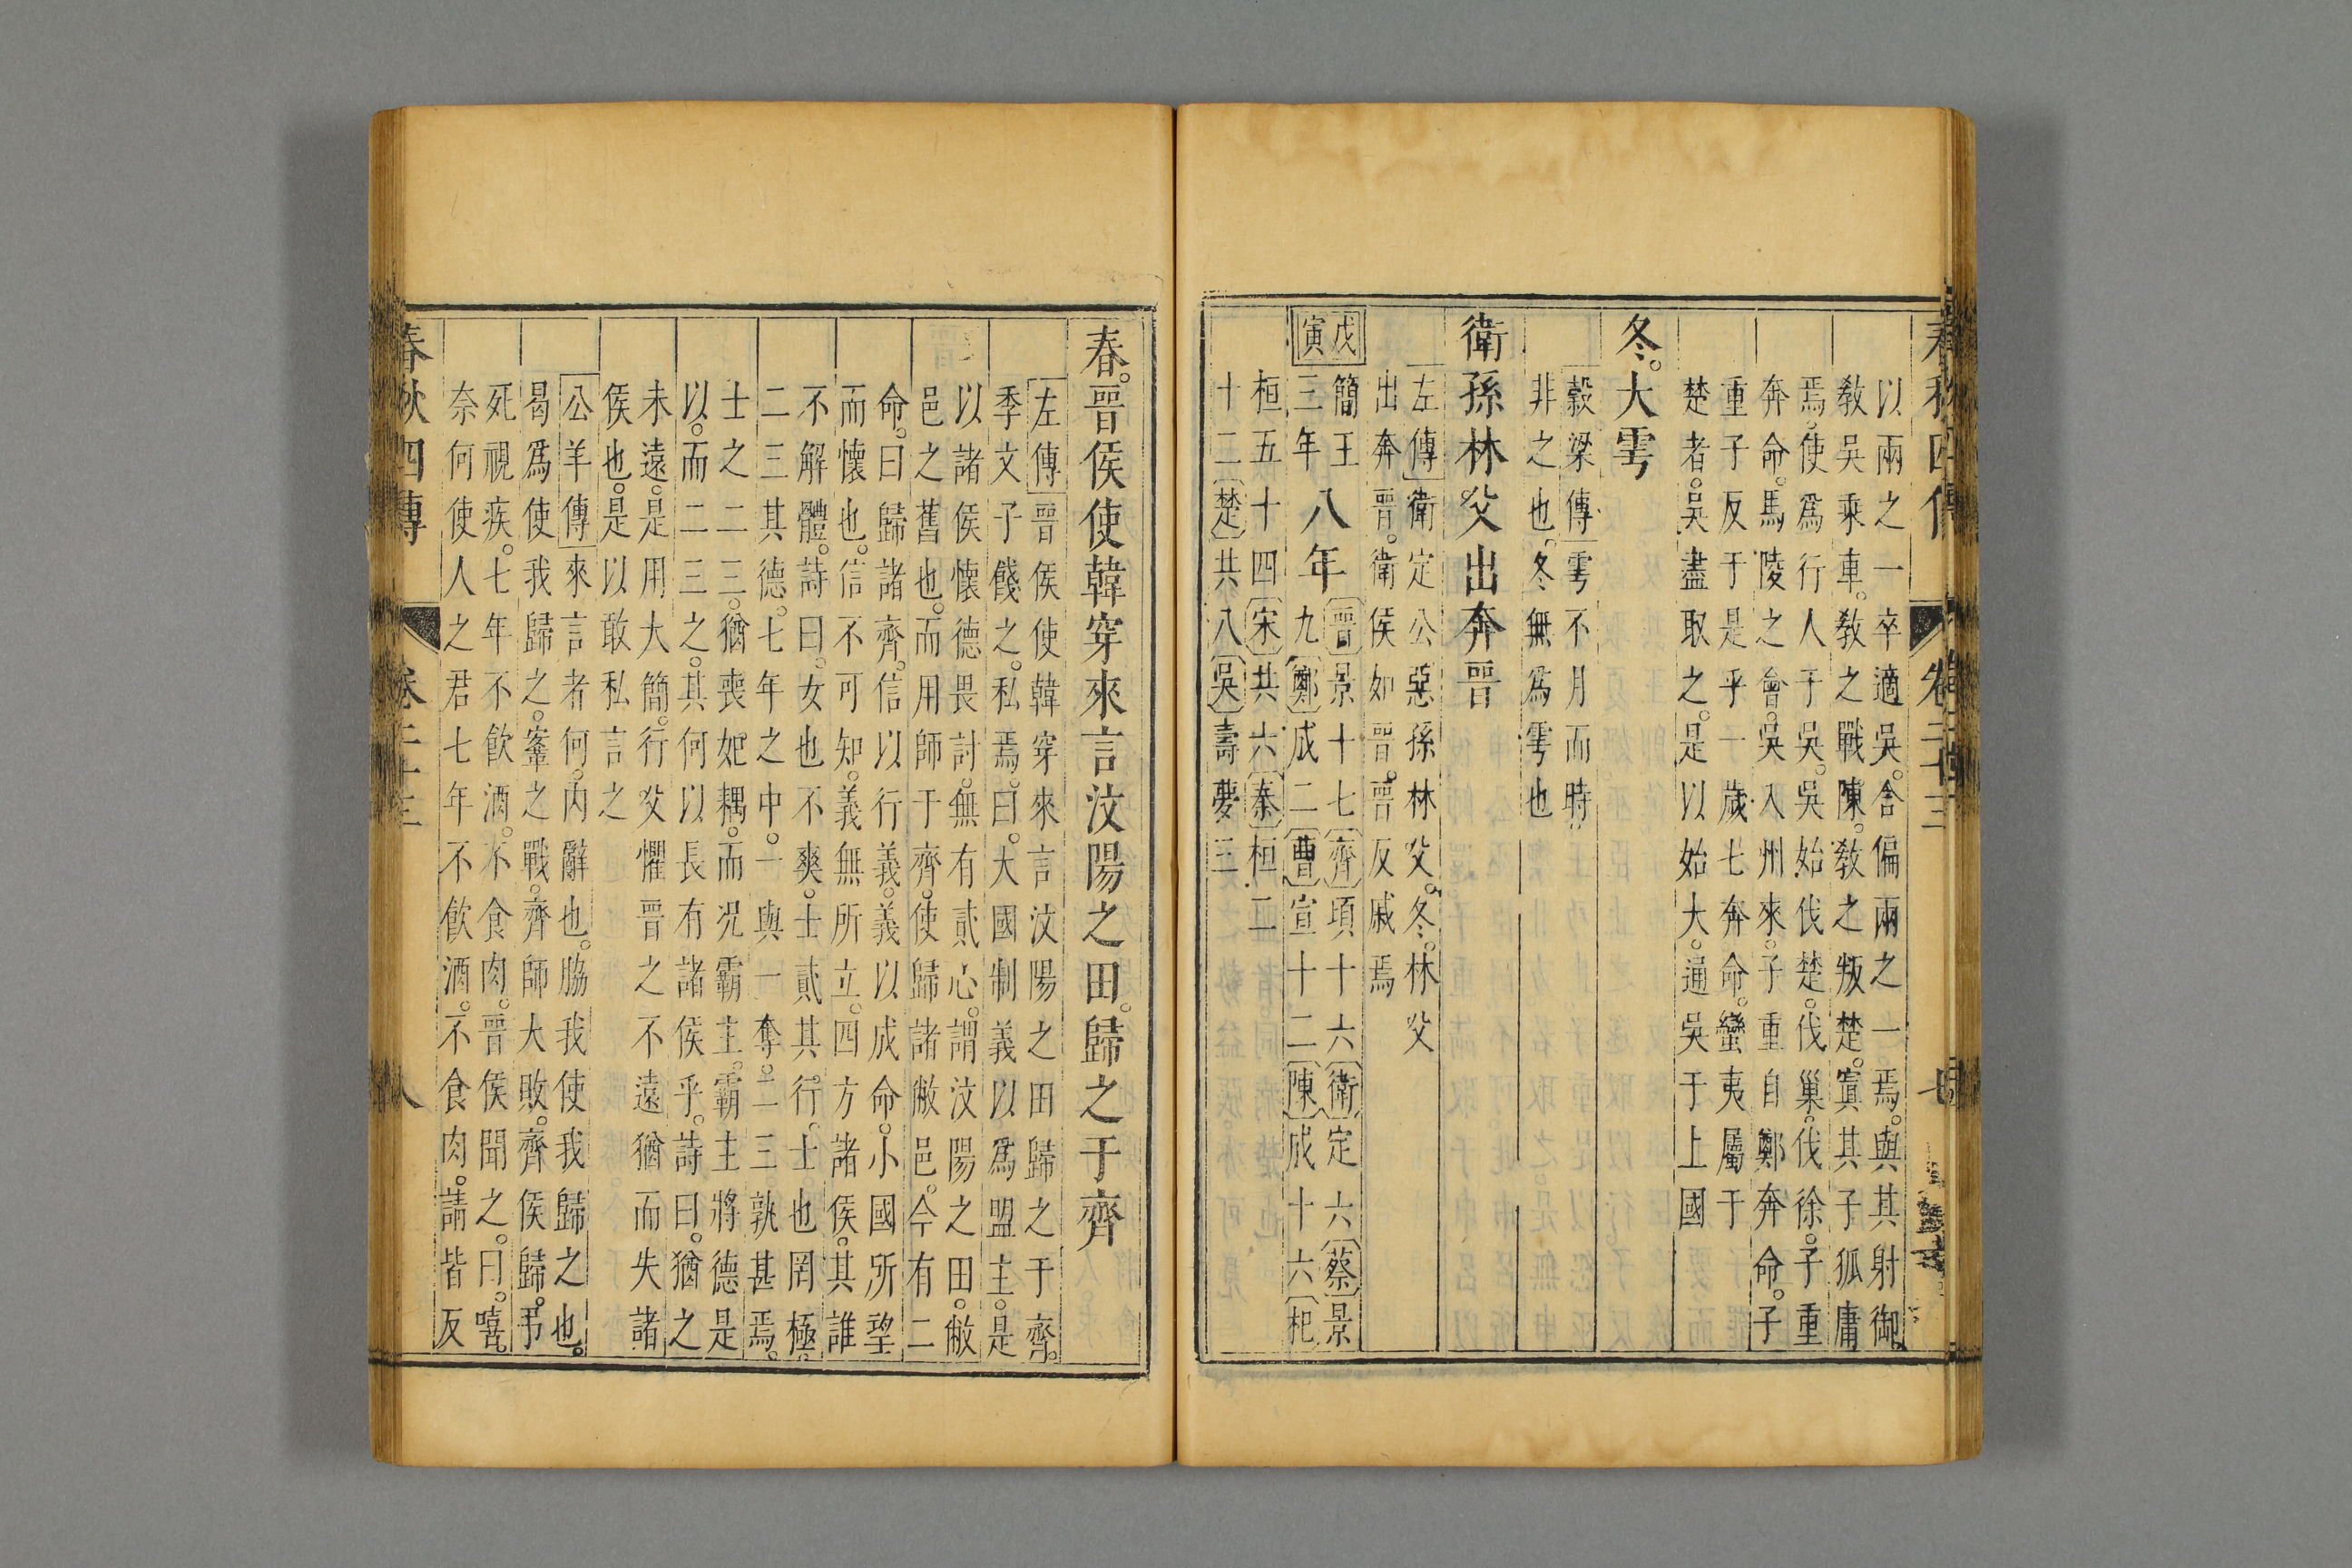 春秋四傳 卷二十三 七
以兩之一卒適吳。舍偏兩之一。焉。與其射御。
敎吳乘車。敎之戰陳。敎之叛楚。寘其子狐庸
焉。使爲行人于吳。吳始伐楚。伐巢。伐徐。子重
奔命。馬陵之會。吳入州來。子重自鄭奔命。子
重子反于是乎一歲七奔命。蠻夷屬于
楚者。吳盡取之。是以始大。通吳于上國
冬。大雩
穀梁傳雩不月而時
非之也。冬無爲雩也
衛孫林父出奔晉
左傳衛定公惡孫林父。冬。林父
出奔晉。衛侯如晉。晉反戚焉
戊寅
簡王三年
八年
晉景十七齊頃十六衛定六蔡景
九鄭成二曹宣十二陳成十六杞
桓五十四宋共六秦桓二
十二楚共八吳壽夢三
春。晉侯使韓穿來言汶陽之田。歸之于齊
左傳晉侯使韓穿來言汶陽之田歸之于齊。
季文子餞之。私焉。曰。大國制義以爲盟主。是
以諸侯懷德畏討。無有貳心。謂汶陽之田。敝
邑之舊也。而用師于齊。使歸諸敝邑。今有二
命。曰歸諸齊。信以行義。義以成命。小國所望
而懷也。信不可知。義無所立。四方諸侯。其誰
不解體。詩曰。女也不爽。士貳其行。士也罔極。
二三其德。七年之中。一與一奪。二三孰甚焉。
士之二三。猶喪妃耦。而況霸主。霸主將德是
以。而二三之。其何以長有諸侯乎。詩曰。猶之
未遠。是用大簡。行父懼晉之不遠猶而失諸
侯也。是以敢私言之
公羊傳來言者何。內辭也。脇我使我歸之也。
曷爲使我歸之。鞌之戰。齊師大敗。齊侯歸。弔
死視疾。七年不飲酒。不食肉。晉侯聞之。曰。嘻。
奈何使人之君七年不飲酒。不食肉。請皆反
春秋四傳 卷二十三 八